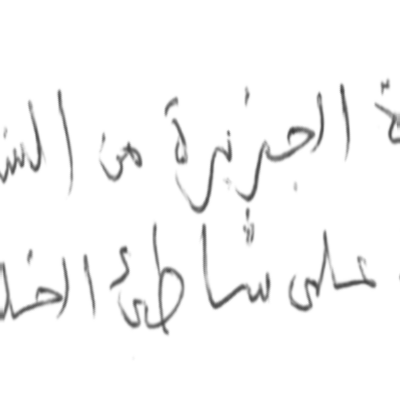 ة الجزيرة من الش
على شاطئ الخل